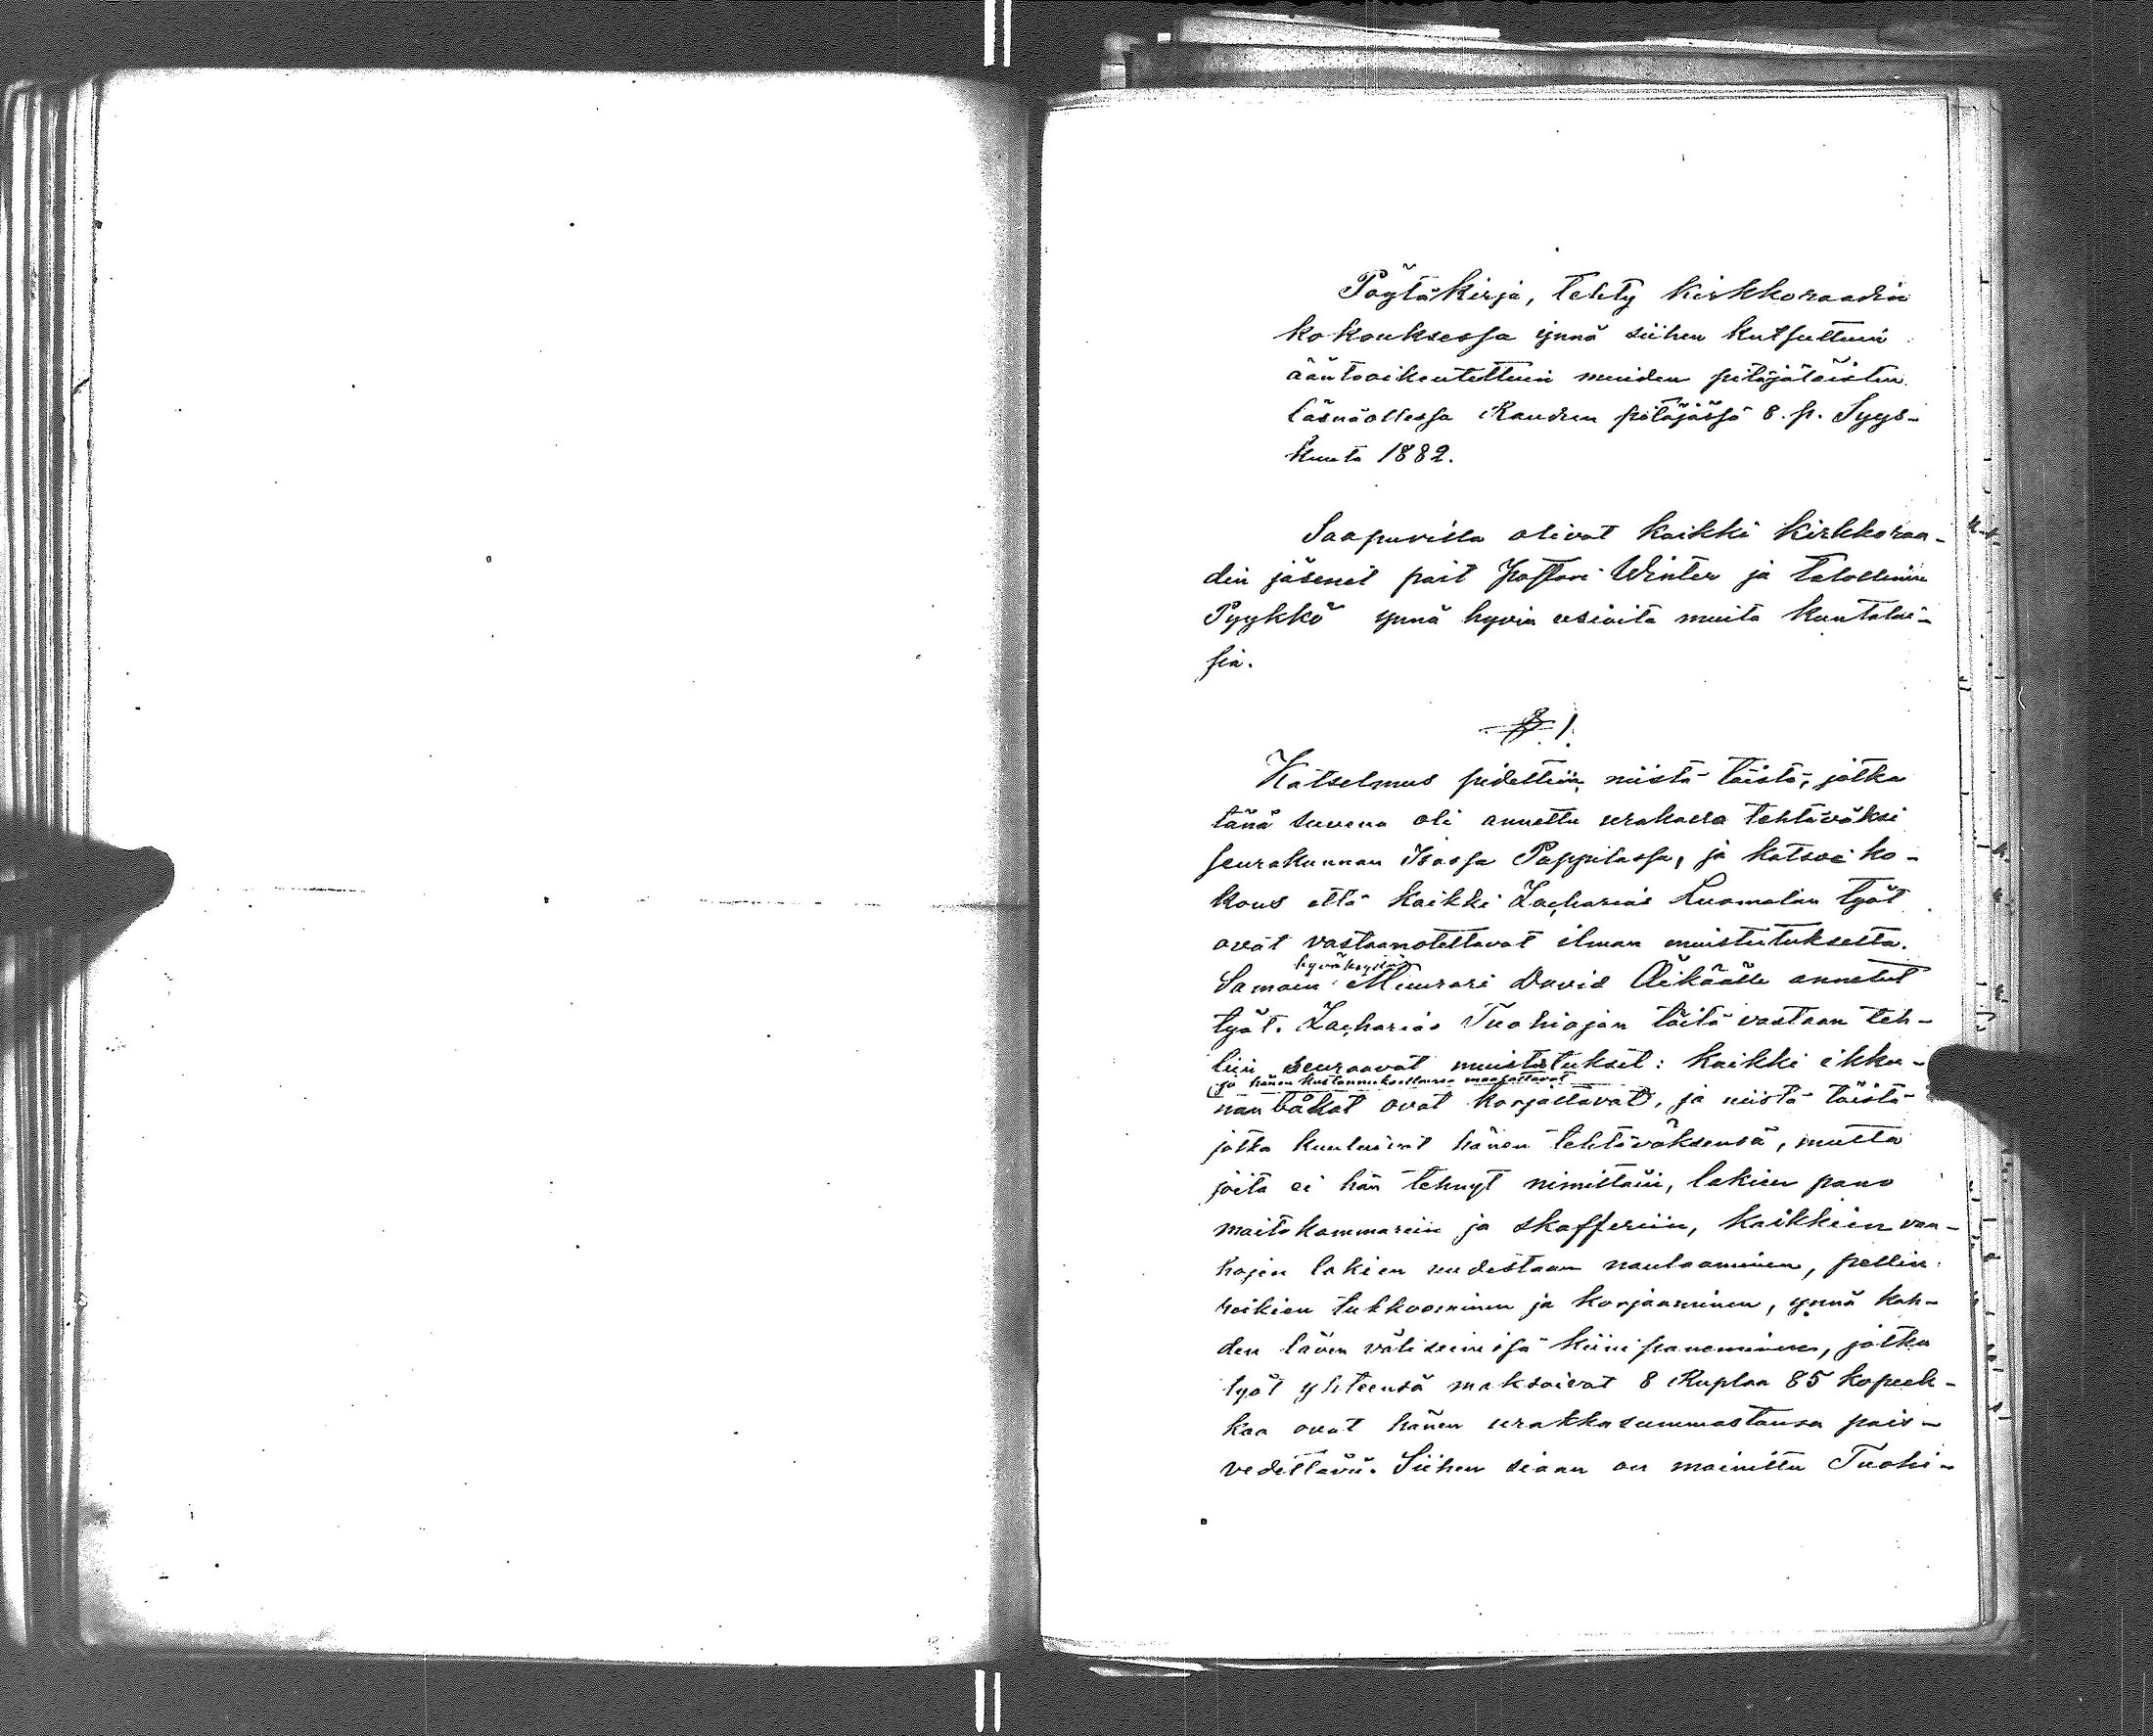 Pöytäkirja, tehty kirkkoraadin
kokouksessa ynnä siihen kutsuttuin
ääntöoikeutettuin muiden pitäjäläisten
läsnäollessa Raudun pitäjässä 8. p. Syys-
kuuta 1882.
Saapuvilla olivat kaikki kirkkoraa-
din jäsenet pait Pastori Winter ja talollinen
Pyykkö ynnä hyvin usioita muita kuntalai-
sia.
§ 1.
Katselmus pidettiin niistä töistä, jotka
tänä suvena oli annettu urakassa tehtäväksi
seurakunnan Isossa Pappilassa, ja katsoi ko-
kous että kaikki Zacharias Luomalan työt
ovat vastaanotettavat ilman muistutuksetta.
hyväksyttiin
Samoin Muurari David Äikäälle annetut
työt. Zacharias Tuohiojan töitä vastaan teh-
tiin seuraavat muistutukset: kaikki ikku-
ja hänen kustannuksellansa maalattavat
nan båkat ovat korjattavat, ja niistä töistä
jotka kuuluivat hänen tehtäväksensä, mutta
joita ei hän tehnyt nimittäin, lakien pano
maitokammariin ja skafferiin, kaikkien van-
hojen lakien uudestaan naulaaminen, pellin
reikien tukkoominen ja korjaaminen, ynnä kah-
den läven väliseinissä kiini paneminen, jotka
työt yhteensä maksoivat 8 Ruplaa 85 kopeek-
kaa ovat hänen urakkasummastansa pois-
vedettävä. Siihen siaan on mainittu Tuohi-